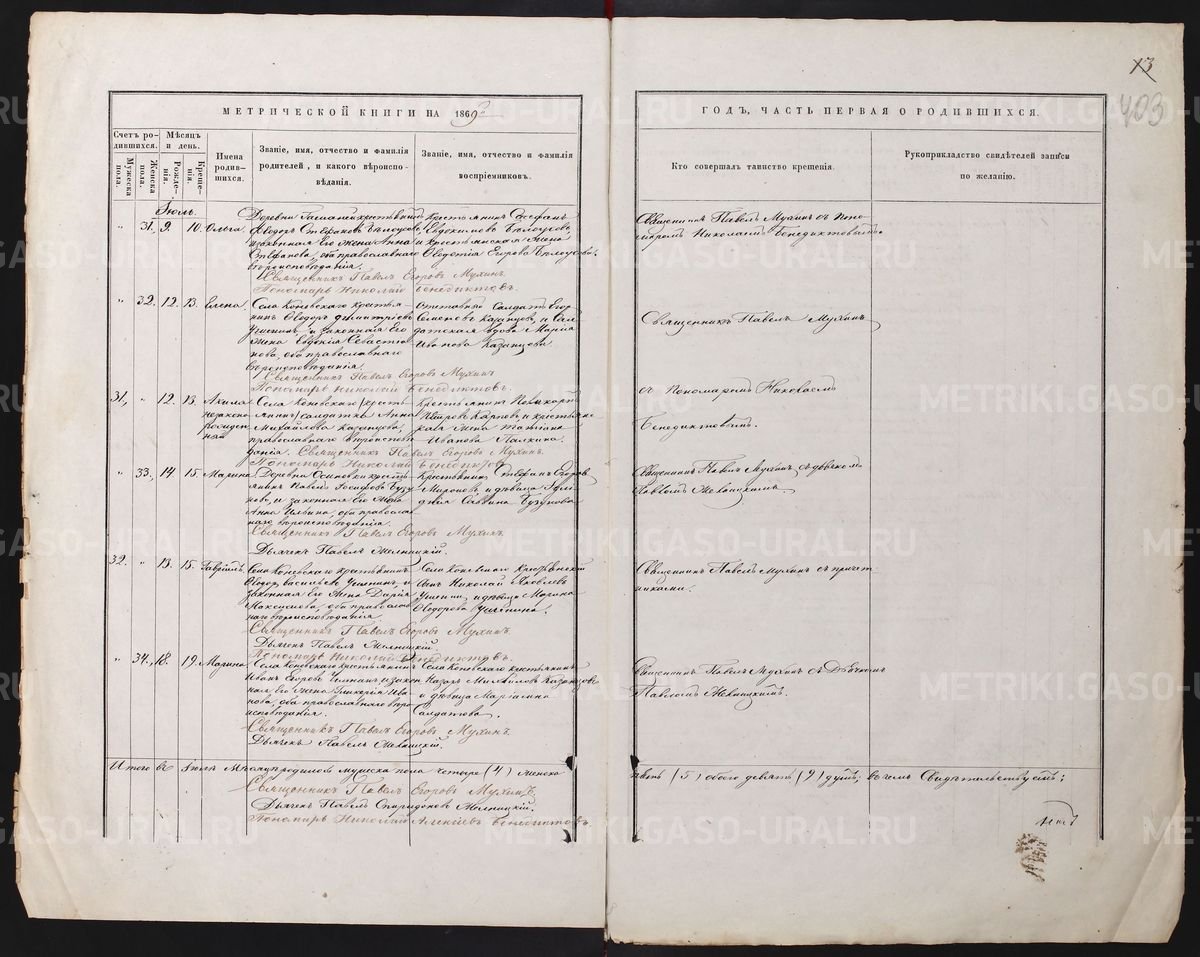 13
403
МЕТРИЧЕСКОЙ КНИГИ НА 1869
ГОДЪ, ЧАСТЬ ПЕРВАЯ О РОДИВШИХСЯ.
Счетъ родившихся.
Мужеска пола.
Женска пола.
Мѣсяцъ и день.
Рожденія.
Крещенія.
Имена родившихся.
Званіе, имя, отчество и фамилія
родителей, и какого вѣроиспо-
вѣданія.
Званіе, имя, отчество и фамилія
воспріемниковъ.
Кто совершалъ таинство крещенія.
Рукоприкладство свидѣтелей записи
по желанію.
Іюль.
" 31. 9. 10. Ольга.
Ѳеодоръ Стефановъ Бѣлоусовъ
и законная его жена Анна
Стефанова, оба православнаго
вѣроисповѣданія.
Крестьянинъ Стефанъ
Евдокимовъ Бѣлоусовъ,
и крестьянская жена
Ѳеодотія Егорова Бѣлоусова.
Священникъ Павелъ Мухинъ съ Поно-
маремъ Николаемъ Бенедиктовымъ.
Священникъ Павелъ Егоровъ Мухинъ.
Пономарь Николай Бенедиктовъ.
" 32. 12. 13. Елена
Села Коневскаго крестья-
нинъ Ѳеодоръ Димитріевъ
и законная его
жена Евдокія Севастья-
нова, оба православнаго
вѣроисповѣданія.
Отставный Солдатъ Егоръ
Семеновъ Казанцовъ, и Сол-
датская вдова Марія
Иванова Казанцова.
Священникъ Павелъ Мухинъ
Священникъ Павелъ Егоровъ Мухинъ
Пономарь Николай Бенедиктовъ.
съ Пономаремъ Николаемъ
Бенедиктовымъ.
31. " 12. 13. Акила
незаконо-
рожден-
ный
Села Коневскаго крестьянина
солдатка Анна
Михайлова Казанцова,
православнаго вѣроисповѣ-
данія.
Крестьянинъ
Петровъ Карповъ, и крестьянс-
кая жена Татіана
Иванова
Священникъ Павелъ Егоровъ Мухинъ.
Пономарь Николай Бенедиктовъ
" 33. 14. 15. Марина
Деревни Осиновки крестья-
нинъ Павелъ Іосифовъ
и законная его жена
Анна Ильина, оба православ-
наго вѣроисповѣданія.
Крестьянинъ Стефанъ Егоровъ
Мироновъ, и дѣвица
Саввина
Священникъ Павелъ Мухинъ съ дьячкомъ
Павломъ
Священникъ Павелъ Егоровъ Мухинъ.
Дьячекъ Павелъ
32. " 13. 15. Гавріилъ.
Села Коневскаго крестьянинъ
Ѳеодоръ Васильевъ и
законная его жена Дарія
Максимова, оба православ-
наго вѣроисповѣданія
Села Коневскаго крестьянскій
сынъ Николай Яковлевъ
и дѣвица Марина
Ѳеодорова
Священникъ Павелъ Мухинъ съ причет-
никами.
Священникъ Павелъ Егоровъ Мухинъ.
Дьячекъ Павелъ
Пономарь Николай Бенедиктовъ.
" 34. 18. 19. Марина
Села Коневскаго крестьянинъ
Иванъ Егоровъ и закон-
ная его жена Гликерія Ива-
нова, оба православнаго вѣро-
исповѣданія.
Села Коневскаго крестьянинъ
Назаръ Михайловъ Казанцовъ
и дѣвица Маріамна
Солдатова.
Священникъ Павелъ Мухинъ съ Дьячкомъ
Павломъ
Священникъ Павелъ Егоровъ Мухинъ.
Дьячекъ Павелъ
Итого въ Іюлѣ Мѣсяцѣ родилось мужеска пола четыре (4) женска
пять (5) обоего девять (9) душъ; въ чемъ Свидѣтельствуемъ;
Священникъ Павелъ Егоровъ Мухинъ.
Дьячекъ Павелъ Спиридоновъ
Пономарь Николай Алексіевъ Бенедиктовъ.
METRIKI.GASO-URAL.RU